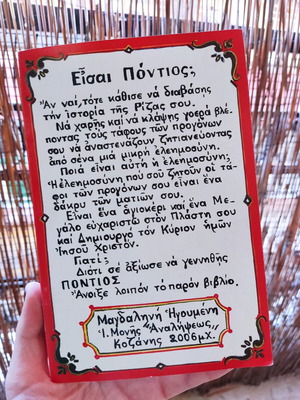 Εἶσαι Πόντιος;
Ἄν ναί, τότε κάθισε νά διαβάσης
τήν ἱστορία τῆς Ρίζας σου.
Νά χαρῆς καί νά κλάψης γοερά βλέ-
ποντας τούς τάφους τῶν προγόνων
σου νά ἀναστενάζουν ζητιανεύοντας
ἀπό σένα μιά μικρή ἐλεημοσύνη.
Ποιά εἶναι αὐτή ἡ ἐλεημοσύνη;
Ἡ ἐλεημοσύνη πού σοῦ ζητοῦν οἱ τά-
φοι τῶν προγόνων σου εἶναι ἕνα
δάκρυ τῶν ματιῶν σου.
Εἶναι ἕνα ἁγιοκέρι καί ἕνα Με-
γάλο εὐχαριστῶ στόν Πλάστη σου
καί Δημιουργό τόν Κύριον ἡμῶν
Ἰησοῦ Χριστόν.
Γιατί;
Διότι σέ ἀξίωσε νά γεννηθῆς
ΠΟΝΤΙΟΣ
Ἄνοιξε λοιπόν τό παρόν βιβλίο.
Μαγδαληνή Ἡγουμένη
Ἱ. Μονῆς "Ἀναλήψεως,,
Κοζάνης 2006 μΧ.